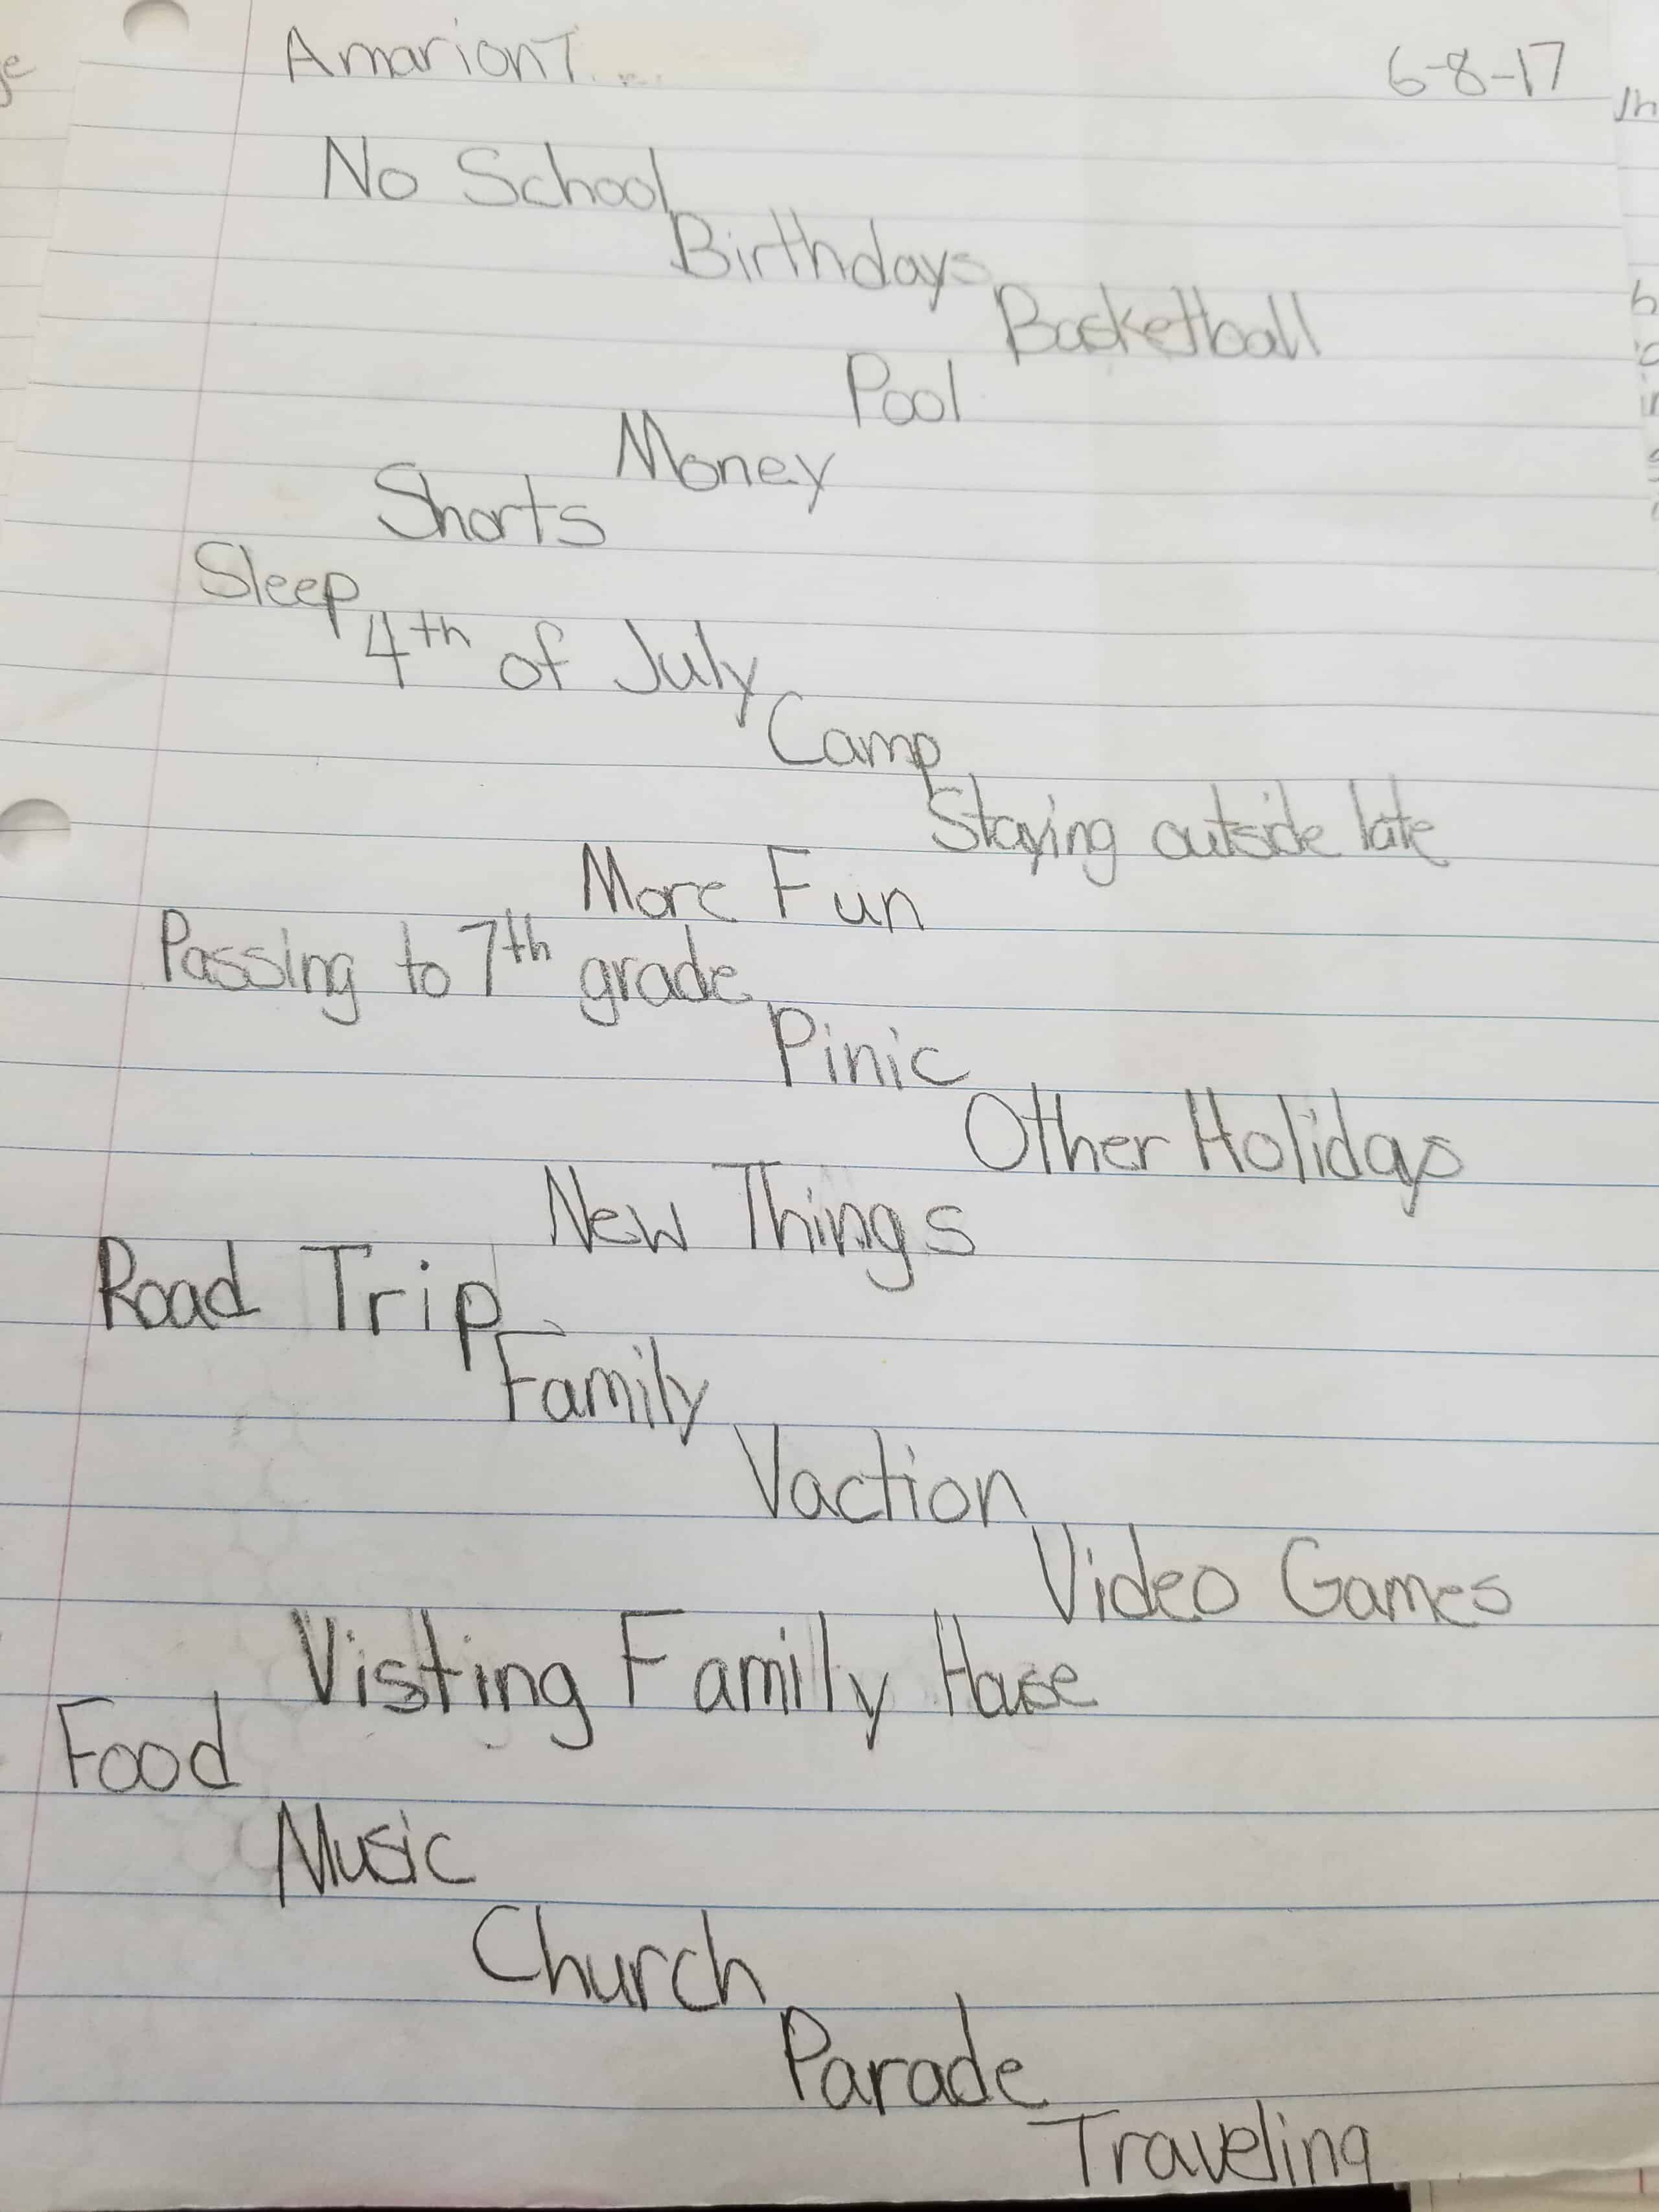 Amarion T. 6-8-17
No School
Birthdays
Basketball
Pool
Money
Shorts
Sleep
4th of July
Camp
Staying outside late
More Fun
Passing to 7th grade
Pinic
Other Holidays
New Things
Road Trip
Family
Vaction
Video Games
Visting Family House
Food
Music
Church
Parade
Traveling